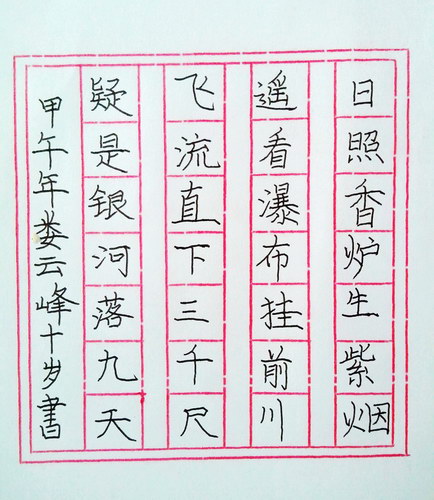 日照香炉生紫烟
遥看瀑布挂前川
飞流直下三千尺
疑是银河落九天
甲午年娄云峰十岁書